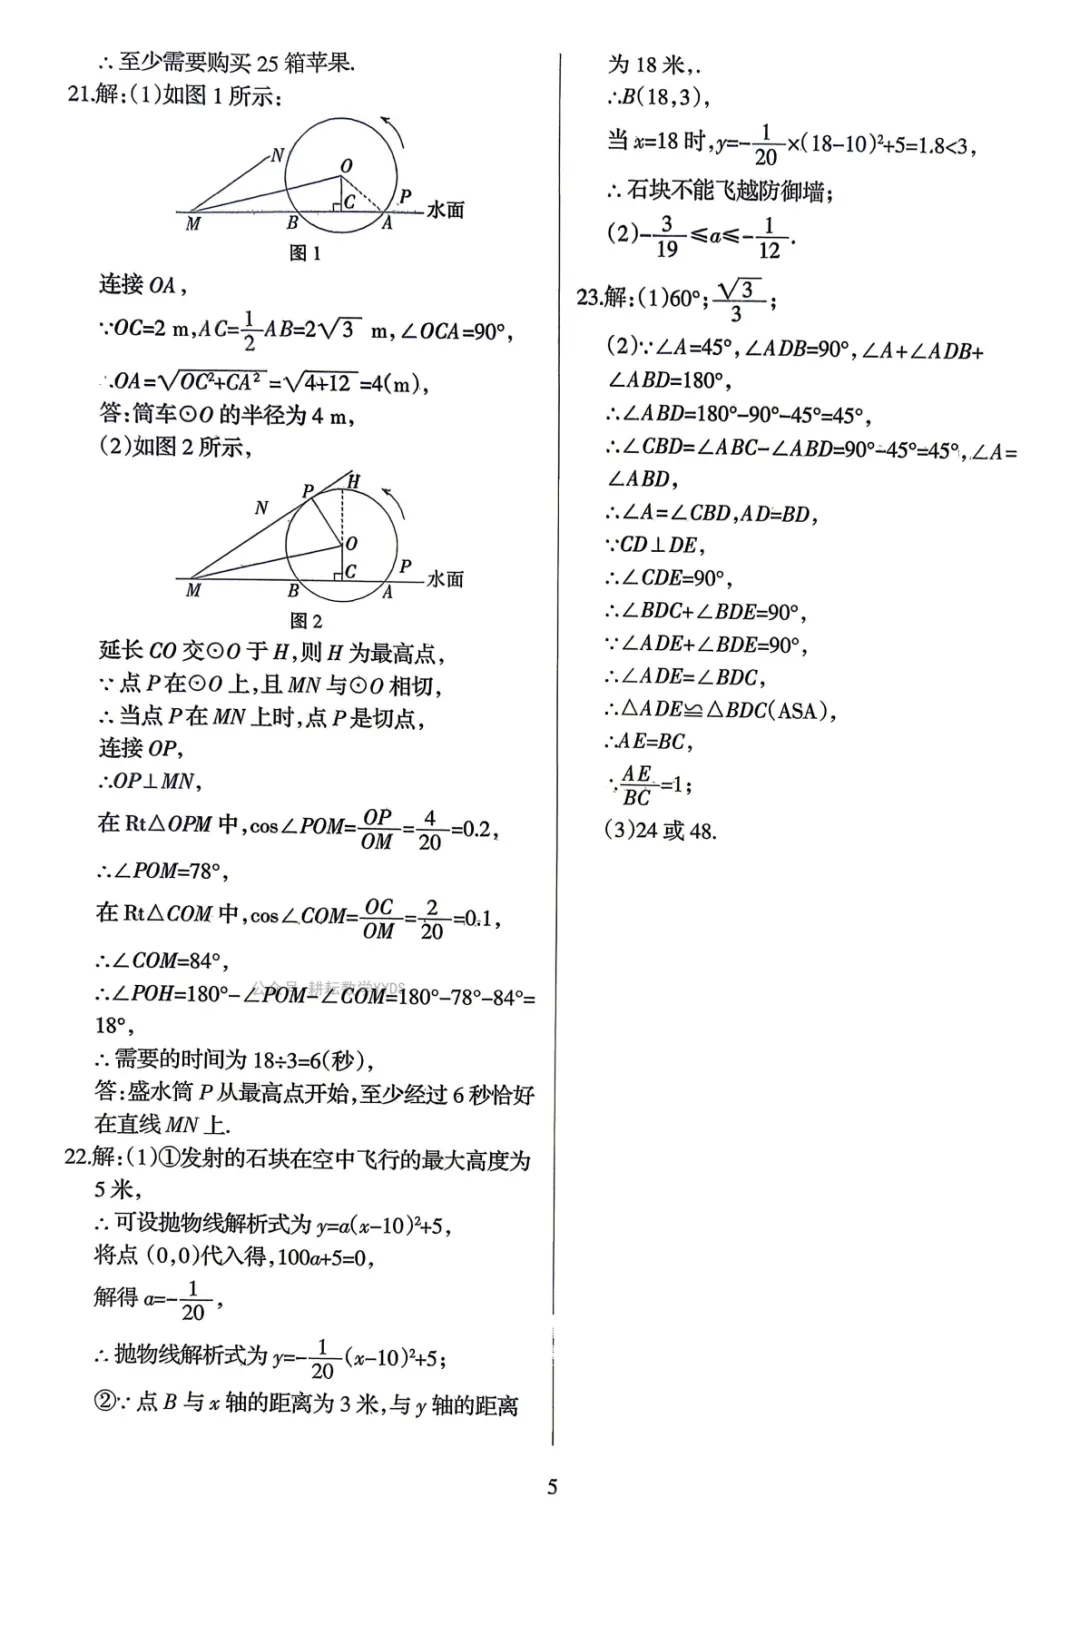 ∴至少需要购买 25 箱苹果.
21.解:(1)如图 1 所示:
N
O
C
P
M
B
A
水面
图 1
连接 OA,
∵OC=2 m,AC=\frac{1}{2}AB=2√3 m,∠OCA=90°,
∴OA=√(OC²+CA²)=√(4+12)=4(m),
答:筒车⊙O 的半径为 4 m,
(2)如图 2 所示,
P
H
N
O
C
P
M
B
A
水面
图 2
延长 CO 交⊙O 于 H,则 H 为最高点,
∵点 P 在⊙O 上,且 MN 与⊙O 相切,
∴当点 P 在 MN 上时,点 P 是切点,
连接 OP,
∴OP⊥MN,
在 Rt△OPM 中,cos∠POM=\frac{OP}{OM}=\frac{4}{20}=0.2,
∴∠POM=78°,
在 Rt△COM 中,cos∠COM=\frac{OC}{OM}=\frac{2}{20}=0.1,
∴∠COM=84°,
公众号·耕耘数学XYDS
∴∠POH=180°-∠POM-∠COM=180°-78°-84°=
18°,
∴需要的时间为 18÷3=6(秒),
答:盛水筒 P 从最高点开始,至少经过 6 秒恰好
在直线 MN 上.
22.解:(1)①发射的石块在空中飞行的最大高度为
5 米,
∴可设抛物线解析式为 y=a(x-10)²+5,
将点 (0,0)代入得,100a+5=0,
解得 a=-\frac{1}{20},
∴抛物线解析式为 y=-\frac{1}{20}(x-10)²+5;
②∵点 B 与 x 轴的距离为 3 米,与 y 轴的距离
为 18 米,.
∴B(18,3),
当 x=18 时,y=-\frac{1}{20}×(18-10)²+5=1.8<3,
∴石块不能飞越防御墙;
(2)-\frac{3}{19}≤a≤-\frac{1}{12}.
23.解:(1)60°;\frac{√3}{3};
(2)∵∠A=45°,∠ADB=90°,∠A+∠ADB+
∠ABD=180°,
∴∠ABD=180°-90°-45°=45°,
∴∠CBD=∠ABC-∠ABD=90°-45°=45°,∠A=
∠ABD,
∴∠A=∠CBD,AD=BD,
∵CD⊥DE,
∴∠CDE=90°,
∴∠BDC+∠BDE=90°,
∵∠ADE+∠BDE=90°,
∴∠ADE=∠BDC,
∴△ADE≌△BDC(ASA),
∴AE=BC,
∵\frac{AE}{BC}=1;
(3)24 或 48.
5